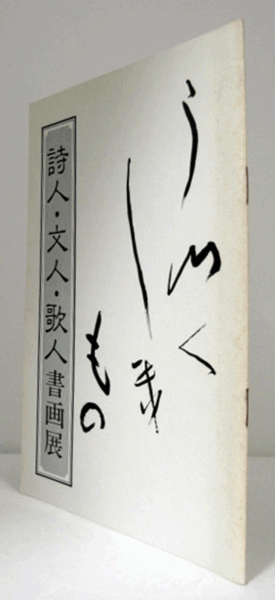 うつく
し幾
もの
詩人・文人・歌人書画展